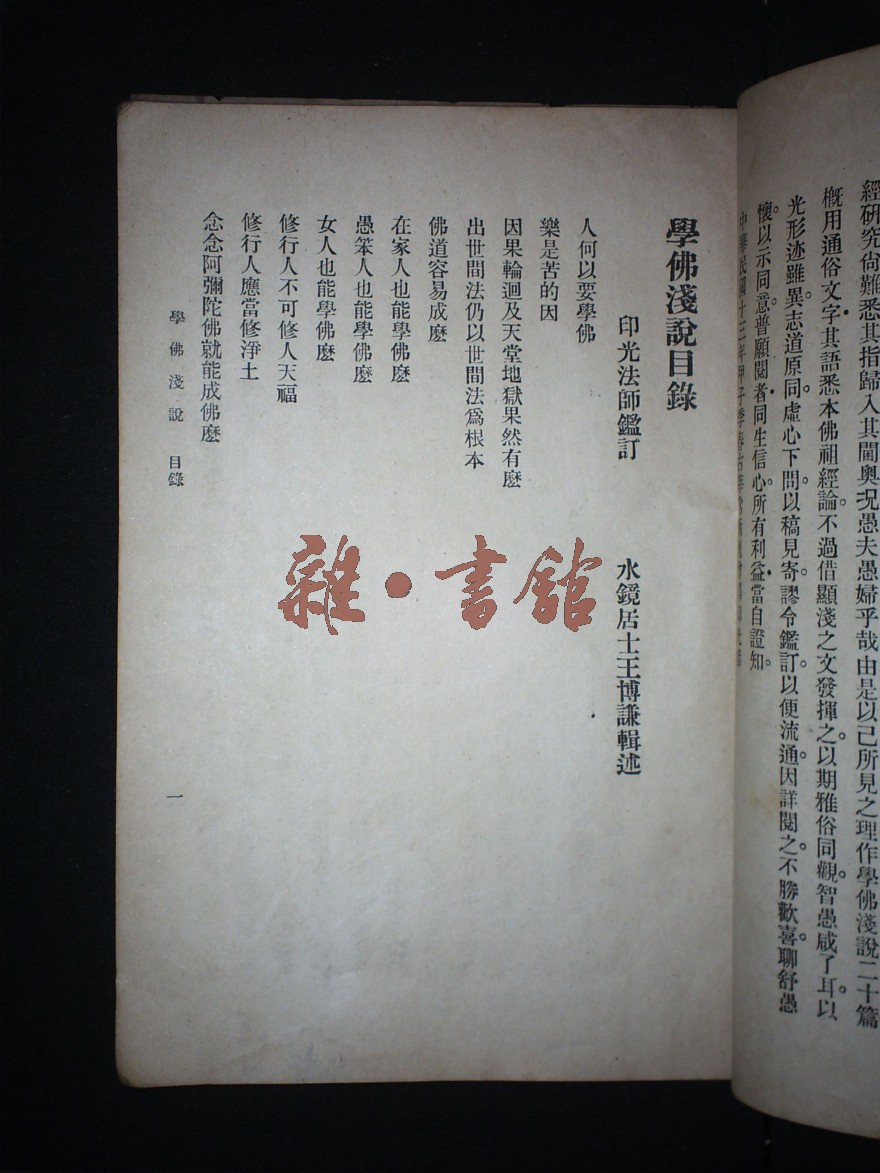 經研究尙難悉其指歸入其閫奧況愚夫愚婦乎哉由是以己所見之理作學佛淺說二十篇
概用通俗文字其語悉本佛祖經論。不過借顯淺之文發揮之。以期雅俗同觀。智愚咸了耳。以
光形迹雖異。志道原同。虛心下問。以稿見寄。謬令鑑訂。以便流通。因詳閱之。不勝歡喜。聊舒愚
懷。以示同意。普願閱者同生信心。所有利益當自證知。
中華民國十三年甲子季春古莘常慚愧僧
學佛淺說目錄
印光法師鑑訂 水鏡居士王博謙輯述
人何以要學佛
樂是苦的因
因果輪迴及天堂地獄果然有麽
出世間法仍以世間法爲根本
佛道容易成麽
在家人也能學佛麽
愚笨人也能學佛麽
女人也能學佛麽
修行人不可修人天福
修行人應當修淨土
念念阿彌陀佛就能成佛麽
學佛淺說 目錄 一
雜·書館